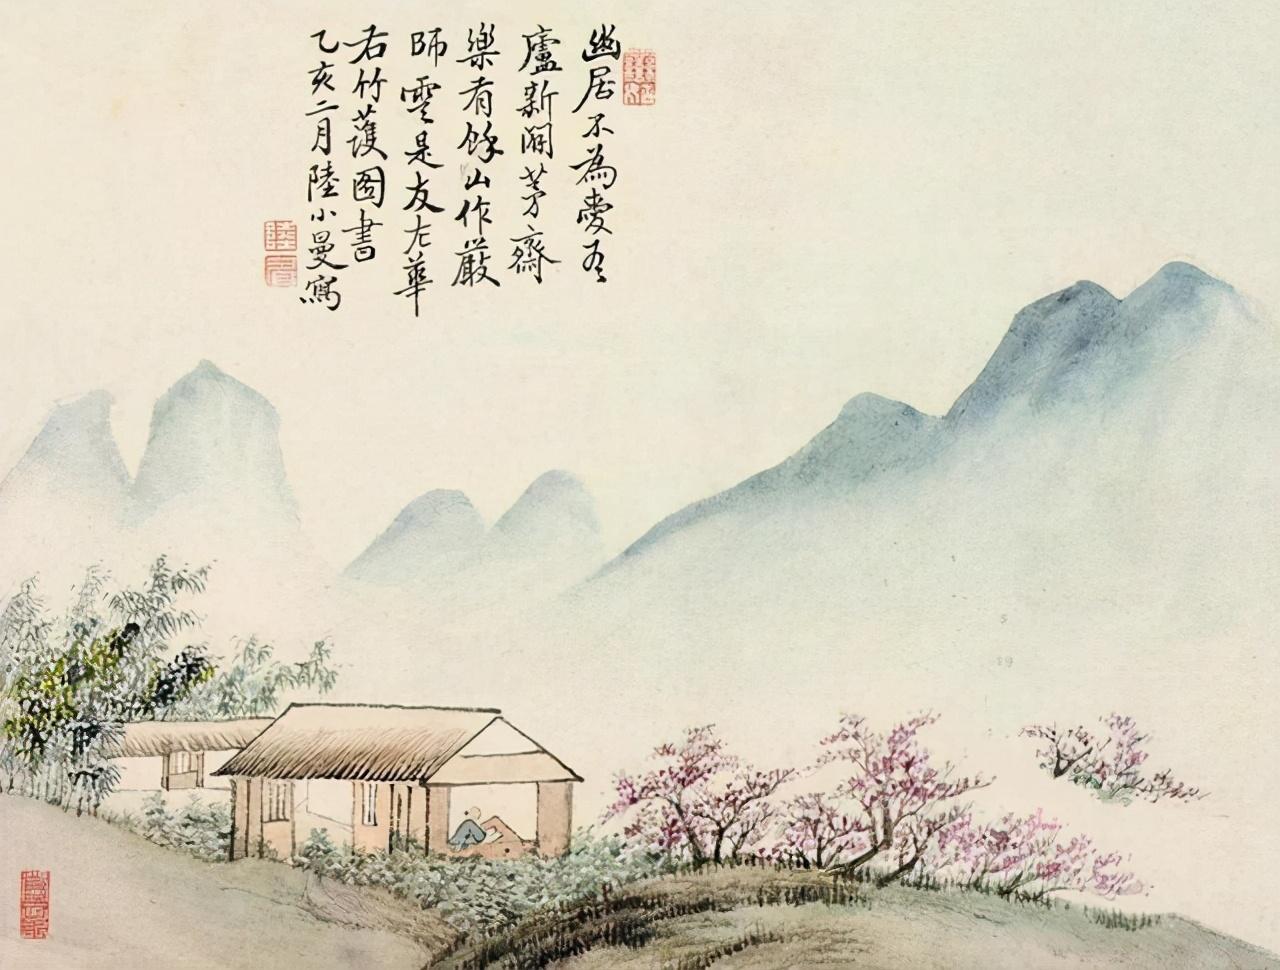 幽居不為愛吾
廬新闢茅齋
樂有餘山作嚴
師雲是友左華
右竹護圖書
乙亥二月陸小曼寫